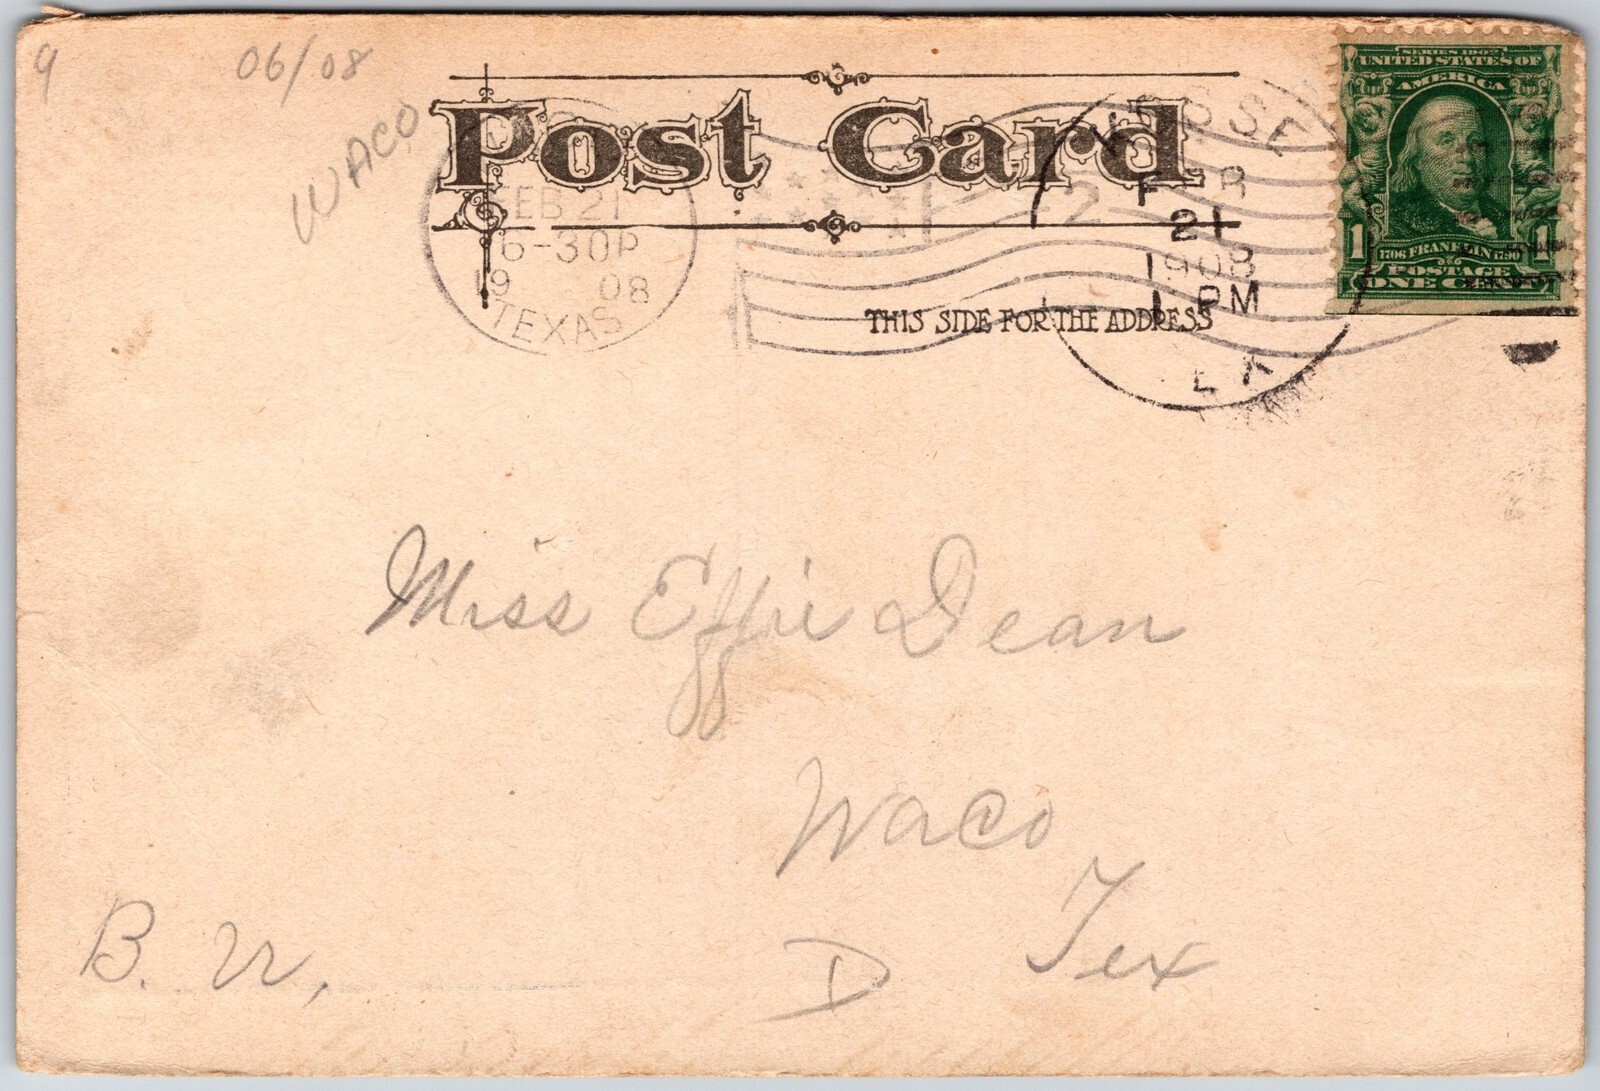 9
06/08
WACO
Post Card
THIS SIDE FOR THE ADDRESS
FEB 21
6-30P
19 08
TEXAS
2
FEB
21
1908
1 PM
SERIES 1902
UNITED STATES OF
AMERICA
1 1
1706 FRANKLIN 1790
POSTAGE
ONE CENT
Miss Effie Dean
Waco
Tex
B. U,
D